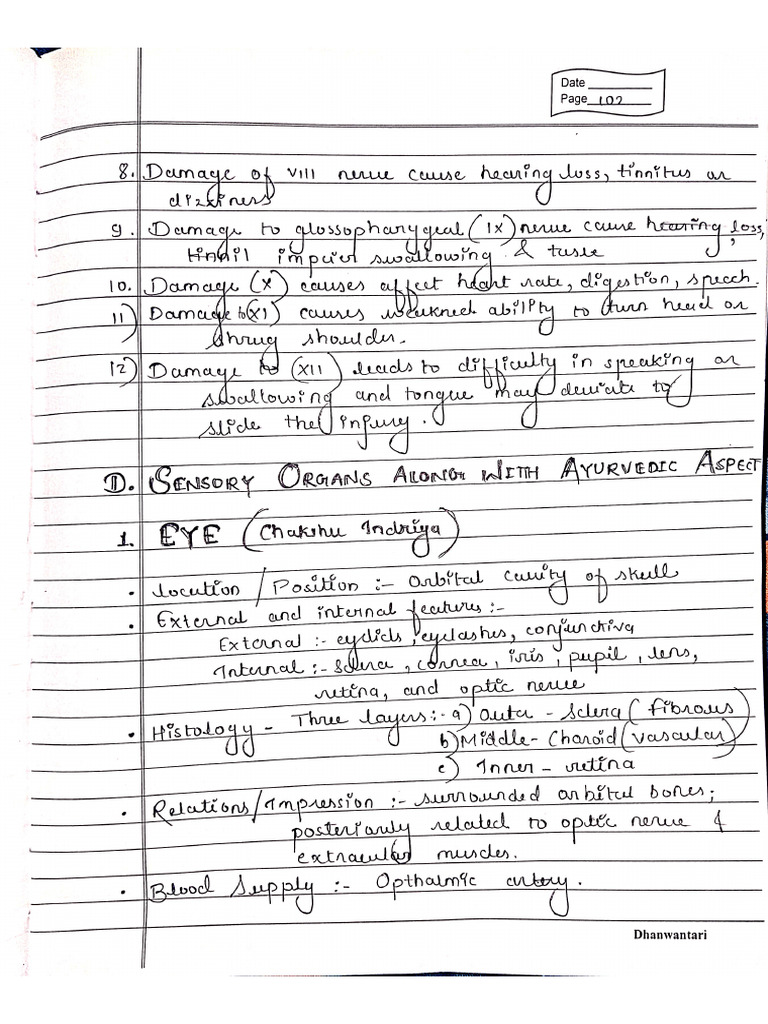 Date
Page 102
8. Damage of VIII nerve cause hearing loss, tinnitus or
dizziness
9. Damage to glossopharygeal (IX) nerve cause hearing loss,
tinnil impair swallowing & taste
10. Damage (X) causes affect heart rate, digestion, speech.
11) Damage to (XI) causes weakned ability to turn head or
shrug shoulder.
12) Damage to (XII) leads to difficulty in speaking or
swallowing and tongue may deviate to
slide the injury.
D. SENSORY ORGANS ALONG WITH AYURVEDIC ASPECT
1. EYE (Chakshu Indriya)
• Location / Position :- Orbital cavity of skull
• External and internal features :-
External :- eyelids, eyelashes, conjunctiva
Internal :- Sclera, cornea, iris, pupil, lens,
retina, and optic nerve
• Histology - Three layers :- a) Outer - Sclera (fibrous)
b) Middle - Choroid (vascular)
c) Inner - retina
• Relations/Impression :- surrounded orbital bones;
posteriorly related to optic nerve &
extraocular muscles.
• Blood Supply :- Opthalmic artery.
Dhanwantari